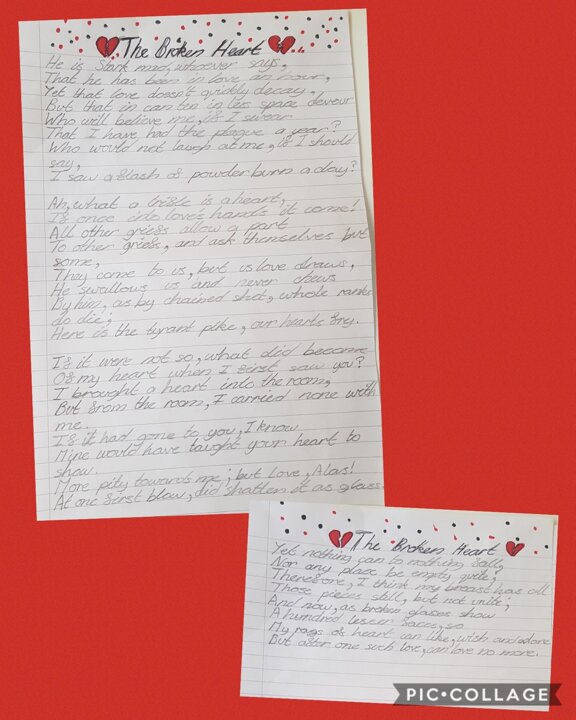 The Broken Heart
He is stark mad, whoever says,
That he has been in love an hour,
Yet that love doesn't quickly decay,
But that in can ten in less space devour
Who will believe me, if I swear
That I have had the plague a year?
Who would not laugh at me, if I should
say,
I saw a flash of powder burn a day?
Ah, what a trifle is a heart,
If once into love's hands it come!
All other griefs allow a part
To other griefs, and ask themselves but
some,
They come to us, but us love draws,
He swallows us and never chaws
By him, as by chained shot, whole ranks
do die;
Here is the tyrant pike, our hearts fry.
If it were not so, what did become
Of my heart when I first saw you?
I brought a heart into the room,
But from the room, I carried none with
me.
If it had gone to you, I know
Mine would have taught your heart to
show.
More pity towards me; but Love, Alas!
At one first blow, did shatten it as glass
The Broken Heart
Yet nothing can to nothing fall,
Nor any place be empty quite;
Therefore, I think my breast has all
Those pieces still, but not unite;
And now, as broken glasses show
A hundred lesser faces, so
My rags of heart can like, wish and adore
But after one such love, can love no more.
PIC•COLLAGE